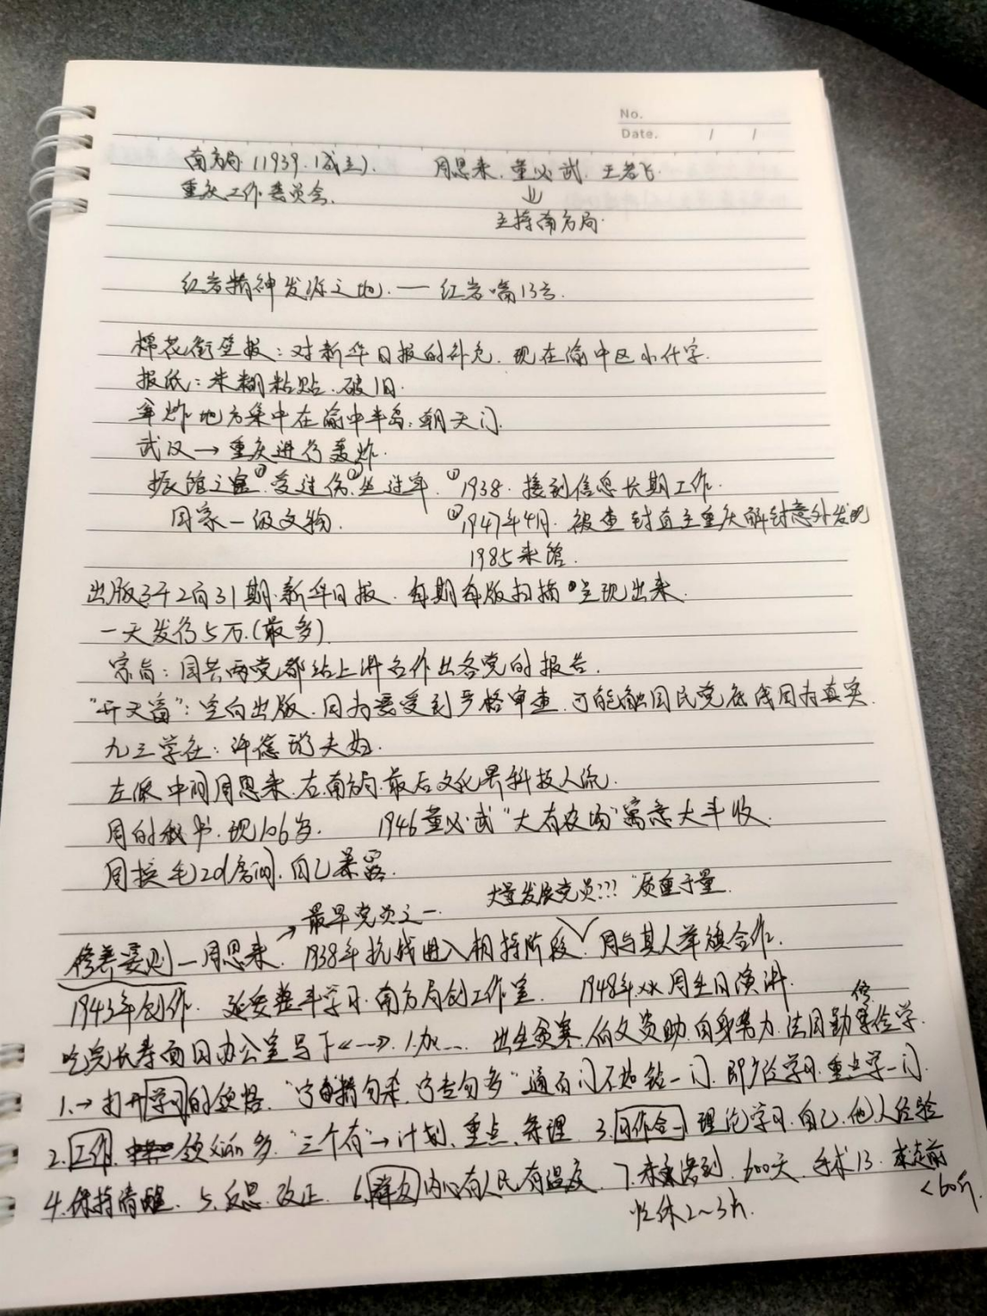 No.
Date. / /
南方局 (1939.1成立). 周恩来. 董必武. 王若飞
重庆工作委员会. ⇓
主持南方局.
红岩精神发源之地. — 红岩嘴13号.
棉花街坐报: 对新华日报的补充. 现在渝中区小什字.
报纸: 米糊粘贴. 破旧.
轰炸地方集中在渝中半岛. 朝天门.
武汉→重庆进行轰炸.
振馆之宝 ①受过伤 ②坐过牢. ①1938. 接到信息长期工作.
国家一级文物. ①1947年4月. 被查封直至重庆解封意外发现
1985来馆.
出版3千2百31期新华日报. 每期每版扫描呈现出来.
一天发行5万.(最多)
宗旨: 国共两党都站上讲台作出各党的报告.
"开天窗": 空白出版. 因为要受到严格审查. 可能触国民党底线因为真实.
九三学社: 许德珩夫妇.
左派中间周恩来. 右南方局. 最后文化界科技人流.
周的秘书. 现106岁. 1946董必武"大有农场"寓意大丰收.
周接毛201房间. 自己暴露.
→最早党员之一. 大量发展党员!!! "质重于量.
修养要则—周恩来. 1938年抗战进入相持阶段. 周与其人举旗合作.
1943年创作. 延安整斗学习. 南方局创工作室. 1948年xx周生日演讲.
吃完长寿面回办公室写下《—》. 1.加... 出生贫寒. 伯父资助. 自身努力. 法国勤俭学.
1.→打开学习的领悟. 通百门不如钻一门. 即广泛学习. 重点学一门.
2.工作. 多. "三个有"→计划、重点、条理. 3. 理论学习. 自己. 他人经验
4.保持清醒. 5.反思. 改正. 6.群力 内心有人民有温度. 7. 600天. 手术13. 去前
<60斤.
2~3斤.